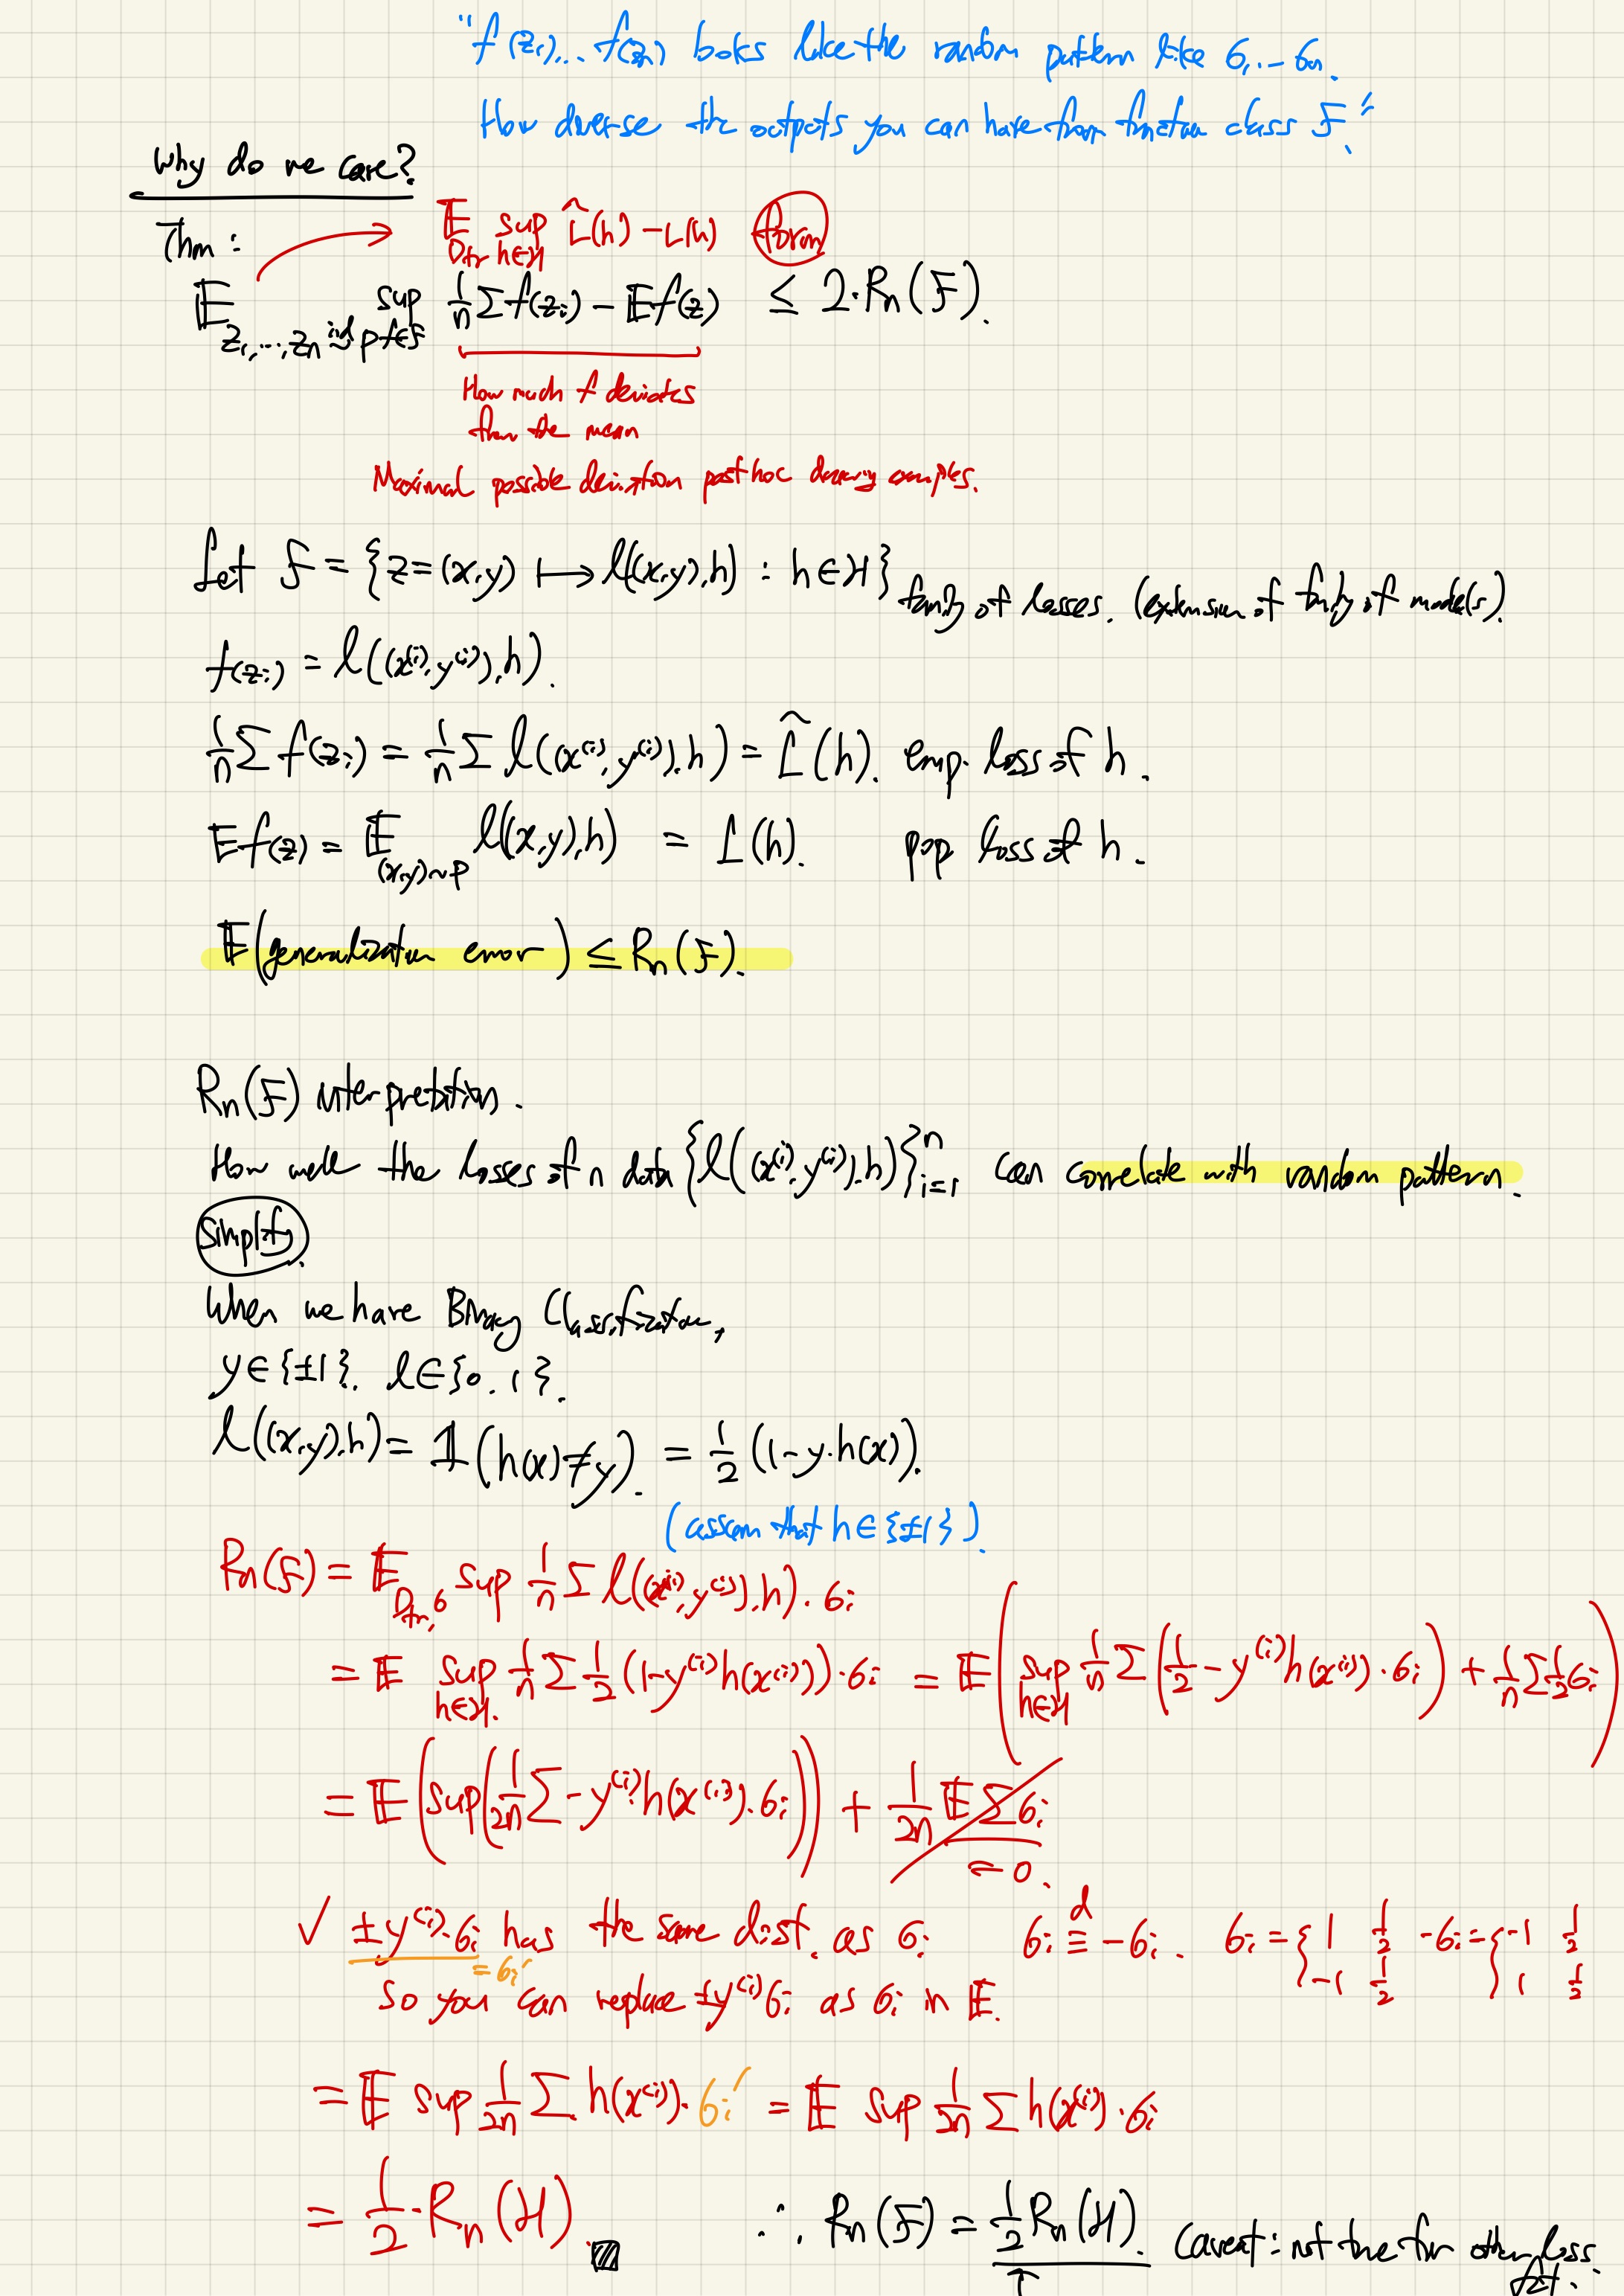 "f(z₁),... f(zₙ) looks like the random pattern like σ₁...σₙ.
How diverse the outputs you can have from function class F."
Why do we care?
Thm:
𝔼_{Dtr} sup_{h∈H} L̂(h) - L(h) form
𝔼_{z₁,...,zₙ iid~ p} sup_{f∈F} 1/n Σ f(zᵢ) - 𝔼f(z) ≤ 2·Rₙ(F).
How much f deviates
than the mean
Maximal possible deviation post hoc drawing examples.
Let F = {z=(x,y) ↦ l((x,y),h) : h∈H} family of losses. (extension of family of models)
f(zᵢ) = l((x⁽ⁱ⁾, y⁽ⁱ⁾), h).
1/n Σ f(zᵢ) = 1/n Σ l((x⁽ⁱ⁾, y⁽ⁱ⁾), h) = L̂(h). emp. loss of h.
𝔼f(z) = 𝔼_{(x,y)~p} l((x,y),h) = L(h). pop loss of h.
𝔼(generalization error) ≤ Rₙ(F).
Rₙ(F) interpretation.
How well the losses of n data {l((x⁽ⁱ⁾, y⁽ⁱ⁾), h)}ⁿᵢ₌₁ can correlate with random pattern.
Simplify.
When we have Binary Classification,
y∈{±1}. l∈{0.1}.
l((x,y),h) = 𝟙(h(x)≠y). = 1/2 (1-y·h(x)).
(assum that h∈{±1}).
Rₙ(F) = 𝔼_{Dtr,σ} sup 1/n Σ l((x⁽ⁱ⁾, y⁽ⁱ⁾), h)·σᵢ
= 𝔼 sup_{h∈H} 1/n Σ 1/2 (1-y⁽ⁱ⁾h(x⁽ⁱ⁾))·σᵢ = 𝔼( sup_{h∈H} 1/n Σ (1/2 - y⁽ⁱ⁾h(x⁽ⁱ⁾)·σᵢ) + 1/n Σ 1/2 σᵢ )
= 𝔼(sup(1/2n Σ -y⁽ⁱ⁾h(x⁽ⁱ⁾)·σᵢ)) + 1/2n 𝔼 Σ σᵢ
= 0.
✓ ±y⁽ⁱ⁾·σᵢ has the same dist. as σᵢ σᵢ ≡ᵈ -σᵢ. σᵢ = { 1 1/2 -1 1/2 -σᵢ = { -1 1/2 1 1/2
= σᵢ′
So you can replace ±y⁽ⁱ⁾σᵢ as σᵢ in 𝔼.
= 𝔼 sup 1/2n Σ h(x⁽ⁱ⁾)·σᵢ′ = 𝔼 sup 1/2n Σ h(x⁽ⁱ⁾)·σᵢ
= 1/2·Rₙ(H).
∴ Rₙ(F) = 1/2 Rₙ(H). Caveat: not true for other loss